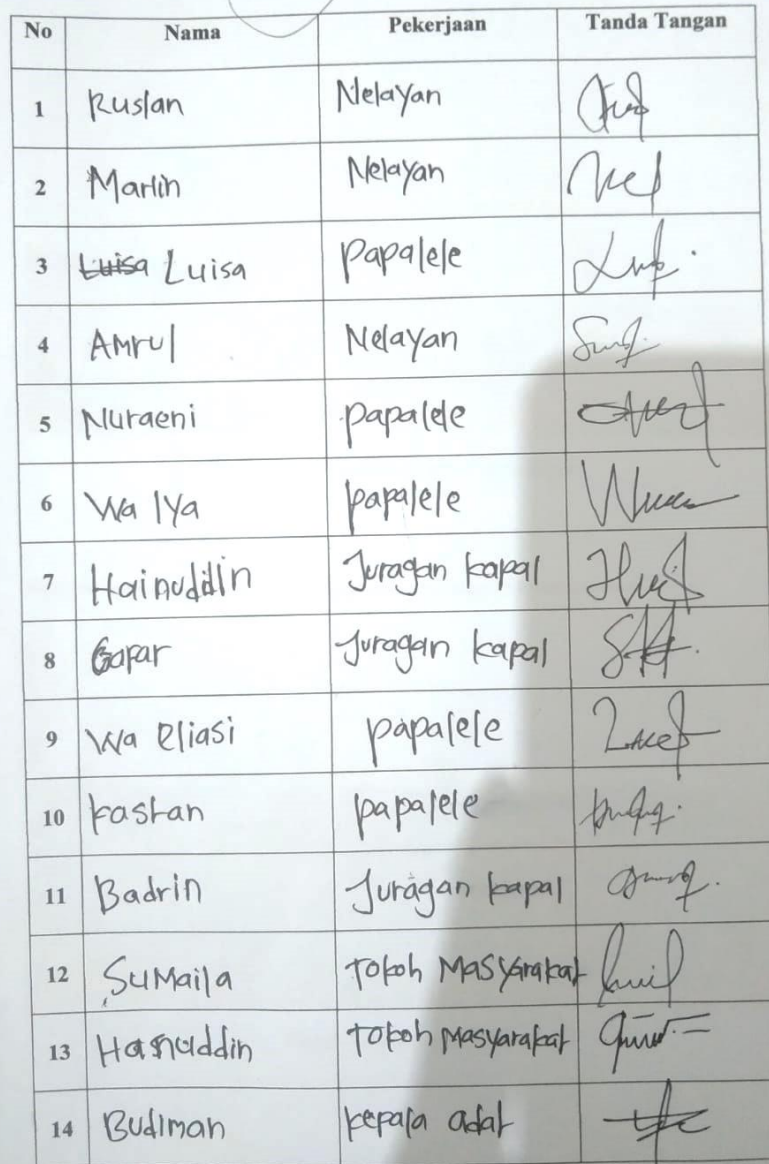 No Nama Pekerjaan Tanda Tangan
1 Ruslan Nelayan
2 Marlin Nelayan
3 Luisa Luisa papalele
4 Amrul Nelayan
5 Nuraeni papalele
6 Wa Iya papalele
7 Hainuddin Juragan kapal
8 Gapar Juragan kapal
9 Wa Eliasi papalele
10 kastan papalele
11 Badrin Juragan kapal
12 SuMaila Tokoh MaSyarakat
13 Hasnuddin Tokoh Masyarakat
14 Budiman kepala adat